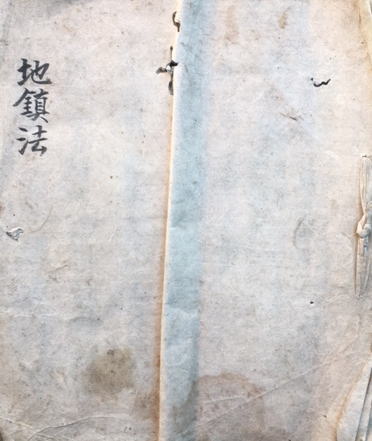 地鎮法